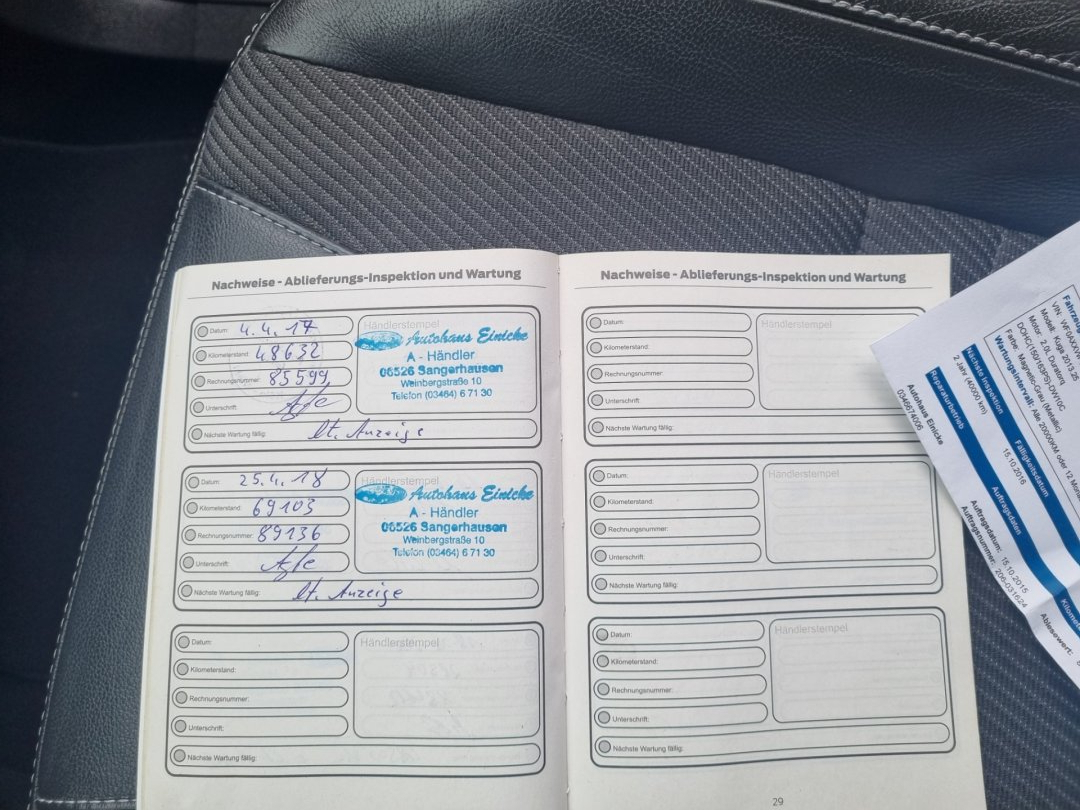 Nachweise - Ablieferungs-Inspektion und Wartung
Datum: 4.4.17
Kilometerstand: 48632
Rechnungsnummer: 85599
Unterschrift:
Nächste Wartung fällig: lt. Anzeige
Händlerstempel
Autohaus Einicke
A - Händler
06526 Sangerhausen
Weinbergstraße 10
Telefon (03464) 6 71 30
Datum: 25.4.18
Kilometerstand: 69103
Rechnungsnummer: 89136
Unterschrift:
Nächste Wartung fällig: lt. Anzeige
Händlerstempel
Autohaus Einicke
A - Händler
06526 Sangerhausen
Weinbergstraße 10
Telefon (03464) 6 71 30
Datum:
Kilometerstand:
Rechnungsnummer:
Unterschrift:
Nächste Wartung fällig:
Händlerstempel
Nachweise - Ablieferungs-Inspektion und Wartung
Datum:
Kilometerstand:
Rechnungsnummer:
Unterschrift:
Nächste Wartung fällig:
Händlerstempel
Datum:
Kilometerstand:
Rechnungsnummer:
Unterschrift:
Nächste Wartung fällig:
Händlerstempel
Datum:
Kilometerstand:
Rechnungsnummer:
Unterschrift:
Nächste Wartung fällig:
Händlerstempel
29
Modell: Kuga 2013.25
Motor: 2.0L Duratorq
DOHC(150/163PS)-DW10C
Farbe: Magnetic-Grau (Metallic)
Wartungsintervall: Alle 20000KM oder 12
Nächste Inspektion
Fälligkeitsdatum
2 Jahr (40000 km)
15.10.2016
Reparaturbetrieb
Auftragsdaten
Autohaus Einicke
0346674006
Auftragsdatum: 15.10.2015
Auftragsnummer: 206-031624
Ablesewert: